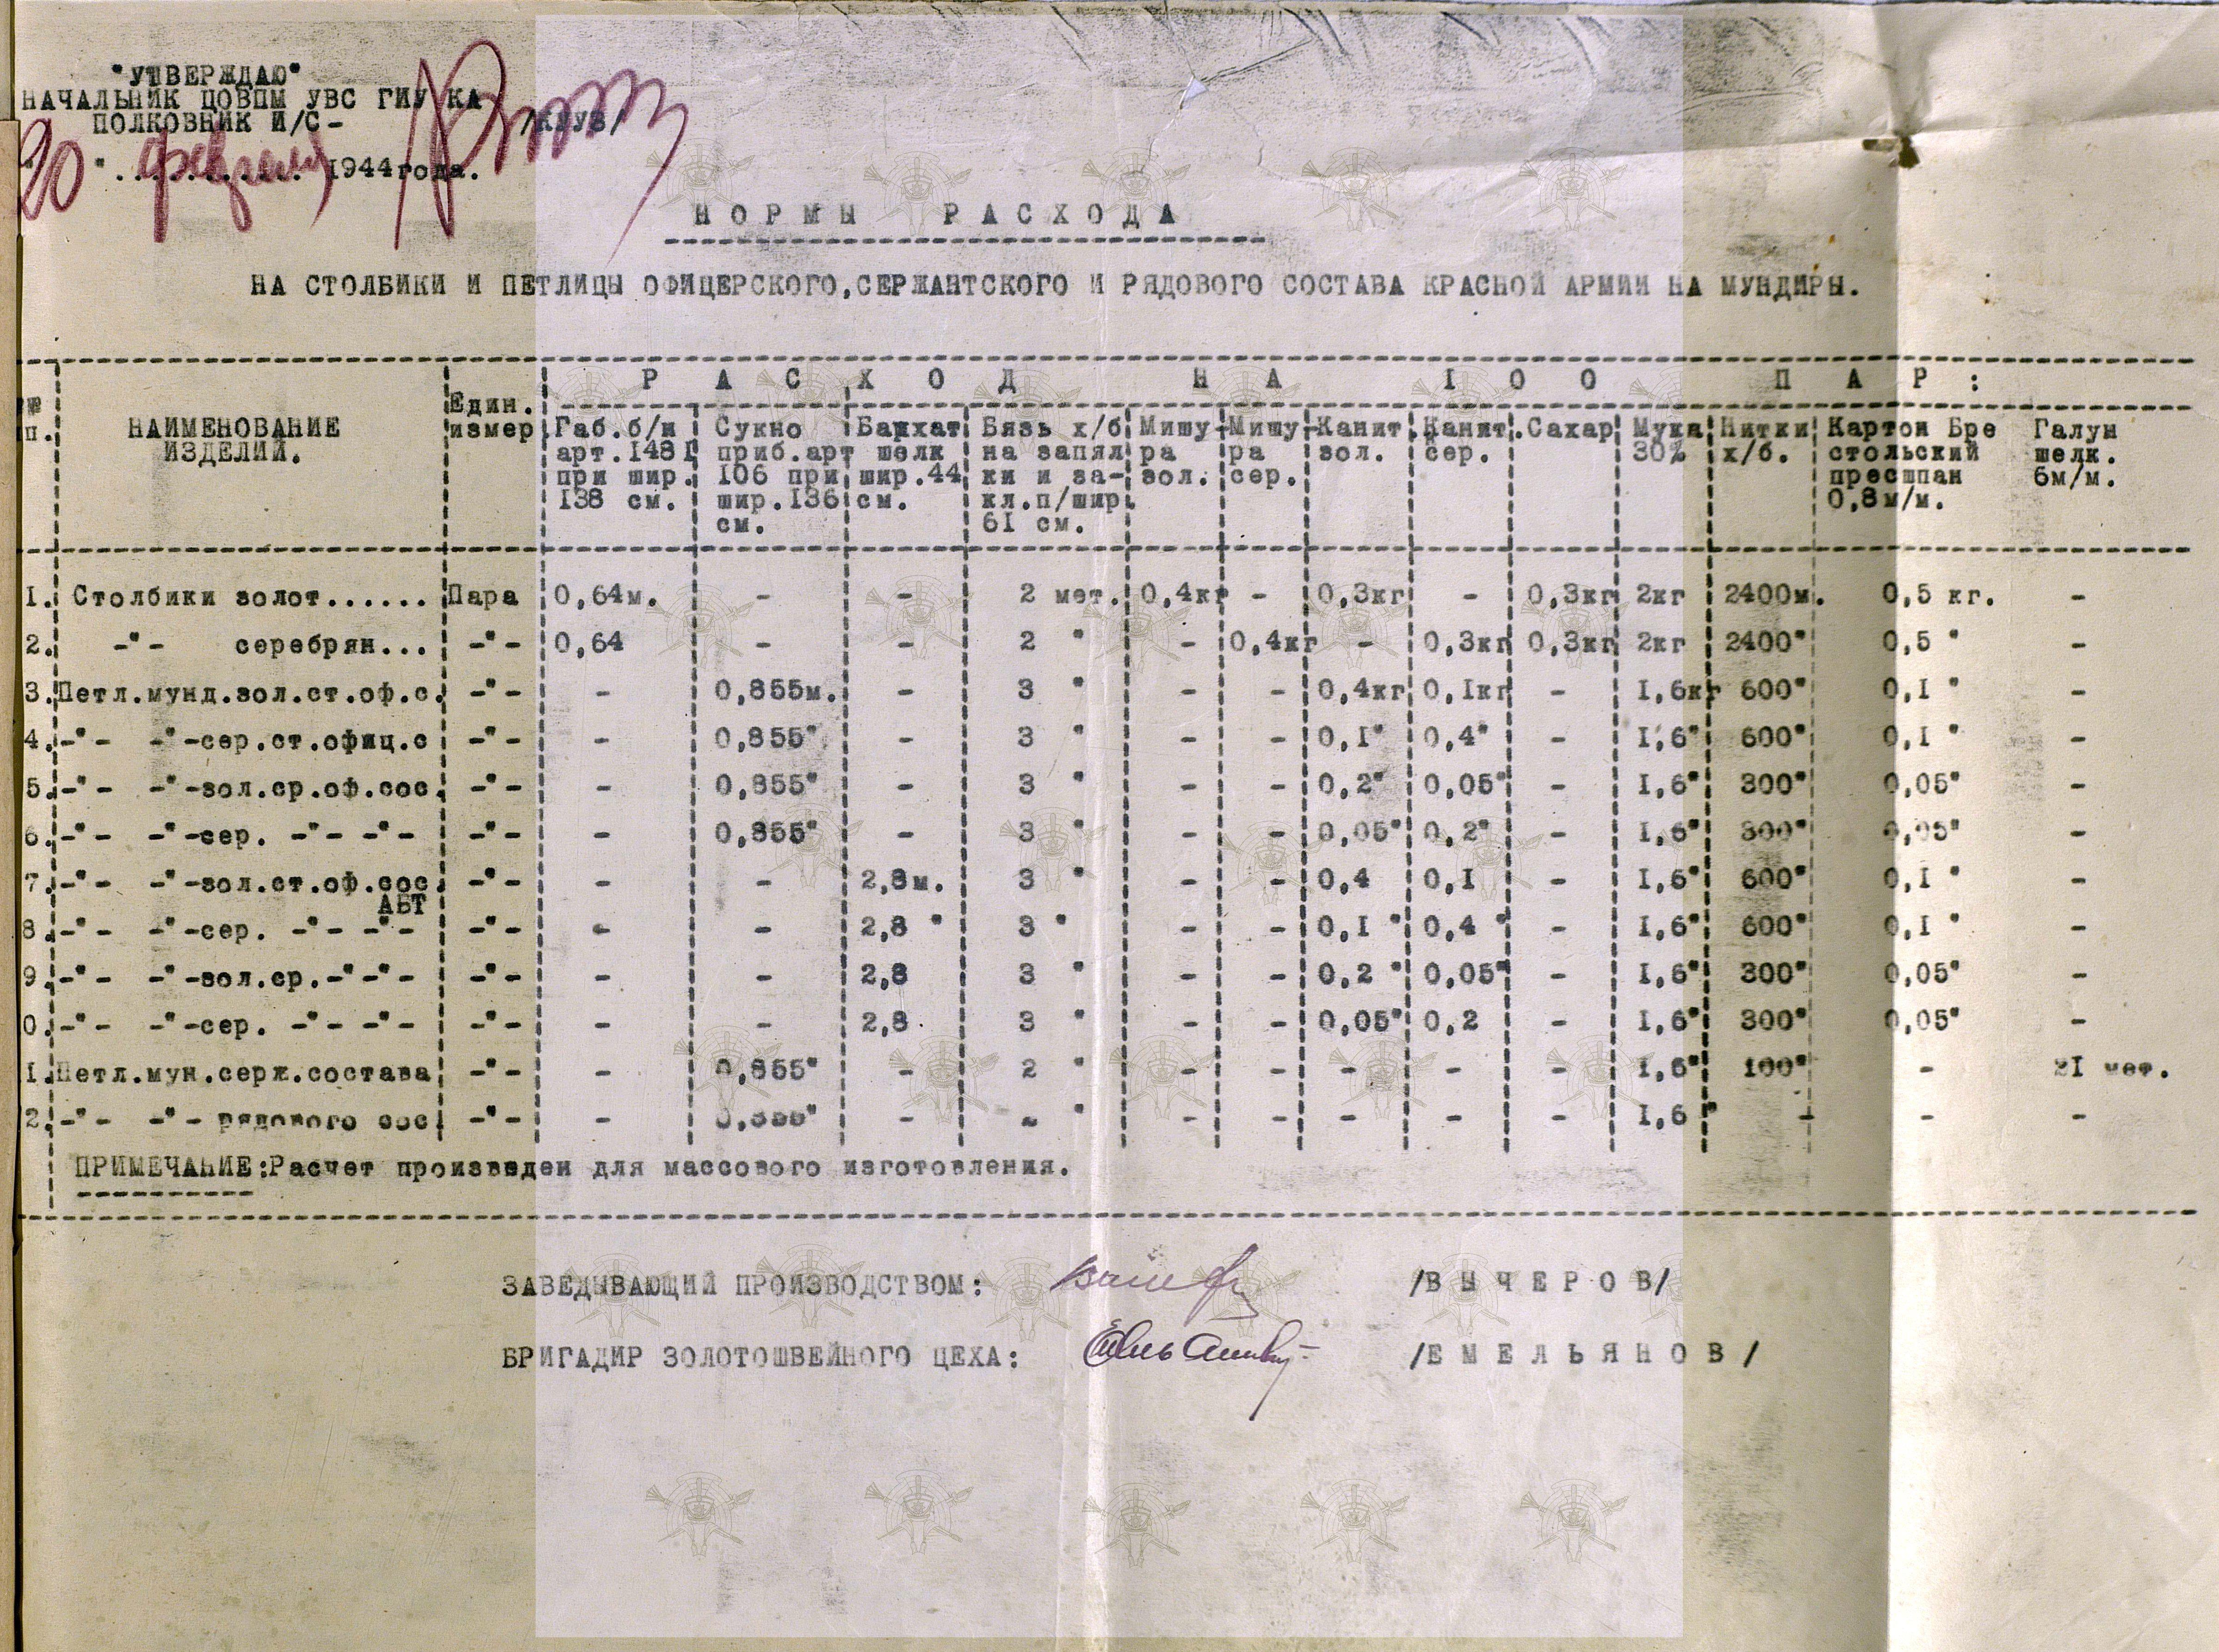 "УТВЕРЖДАЮ"
НАЧАЛЬНИК ЦОВПМ УВС ГИУ КА
ПОЛКОВНИК И/С- /КУУЗ/
20 " февраля 1944 года.
НОРМЫ РАСХОДА
НА СТОЛБИКИ И ПЕТЛИЦЫ ОФИЦЕРСКОГО, СЕРЖАНТСКОГО И РЯДОВОГО СОСТАВА КРАСНОЙ АРМИИ НА МУНДИРЫ.
РАСХОД НА 100 ПАР:
п. НАИМЕНОВАНИЕ Един. Габ.б/н Сукно Бархат Бязь х/б Мишу- Мишу- Канит. Канит. Сахар Мука Нитки Картон Бре Галун
ИЗДЕЛИЙ. измер арт.1481 приб.арт шелк на запял ра ра зол. сер. 30% х/б. стольский шелк.
при шир. 106 при шир.44 ки и за- зол. сер. пресшпан 6м/м.
138 см. шир.136 см. кл.п/шир. 0,8м/м.
см. 61 см.
1. Столбики золот...... Пара 0,64м. - - 2 мет. 0,4кг - 0,3кг - 0,3кг 2кг 2400м. 0,5 кг. -
2. -"- серебрян... -"- 0,64 - - 2 " - 0,4кг - 0,3кг 0,3кг 2кг 2400" 0,5 " -
3. Петл.мунд.зол.ст.оф.с. -"- - 0,855м. - 3 " - - 0,4кг 0,1кг - 1,6кг 600" 0,1 " -
4. -"- -"-сер.ст.офиц.с -"- - 0,855" - 3 " - - 0,1" 0,4" - 1,6" 600" 0,1 " -
5. -"- -"-зол.ср.оф.сос. -"- - 0,855" - 3 " - - 0,2" 0,05" - 1,6" 300" 0,05" -
6. -"- -"-сер. -"- -"- -"- - 0,855" - 3 " - - 0,05" 0,2" - 1,6" 300" 0,05" -
7. -"- -"-зол.ст.оф.сос. -"- - - 2,8м. 3 " - - 0,4 0,1 - 1,6" 600" 0,1 " -
АБТ
8. -"- -"-сер. -"- -"- -"- - - 2,8 " 3 " - - 0,1 " 0,4 " - 1,6" 600" 0,1 " -
9. -"- -"-зол.ср.-"-"- -"- - - 2,8 3 " - - 0,2 " 0,05" - 1,6" 300" 0,05" -
0. -"- -"-сер. -"- -"- -"- - - 2,8 3 " - - 0,05" 0,2 - 1,6" 300" 0,05" -
1. Петл.мун.серж.состава -"- - 0,855" - 2 " - - - - - 1,6" 100" - 21 мет.
2. -"- -"- рядового сос. -"- - 0,855" - " - - - - - 1,6 " - - -
ПРИМЕЧАНИЕ: Расчет произведен для массового изготовления.
ЗАВЕДЫВАЮЩИЙ ПРОИЗВОДСТВОМ: /ВЫЧЕРОВ/
БРИГАДИР ЗОЛОТОШВЕЙНОГО ЦЕХА: /ЕМЕЛЬЯНОВ/